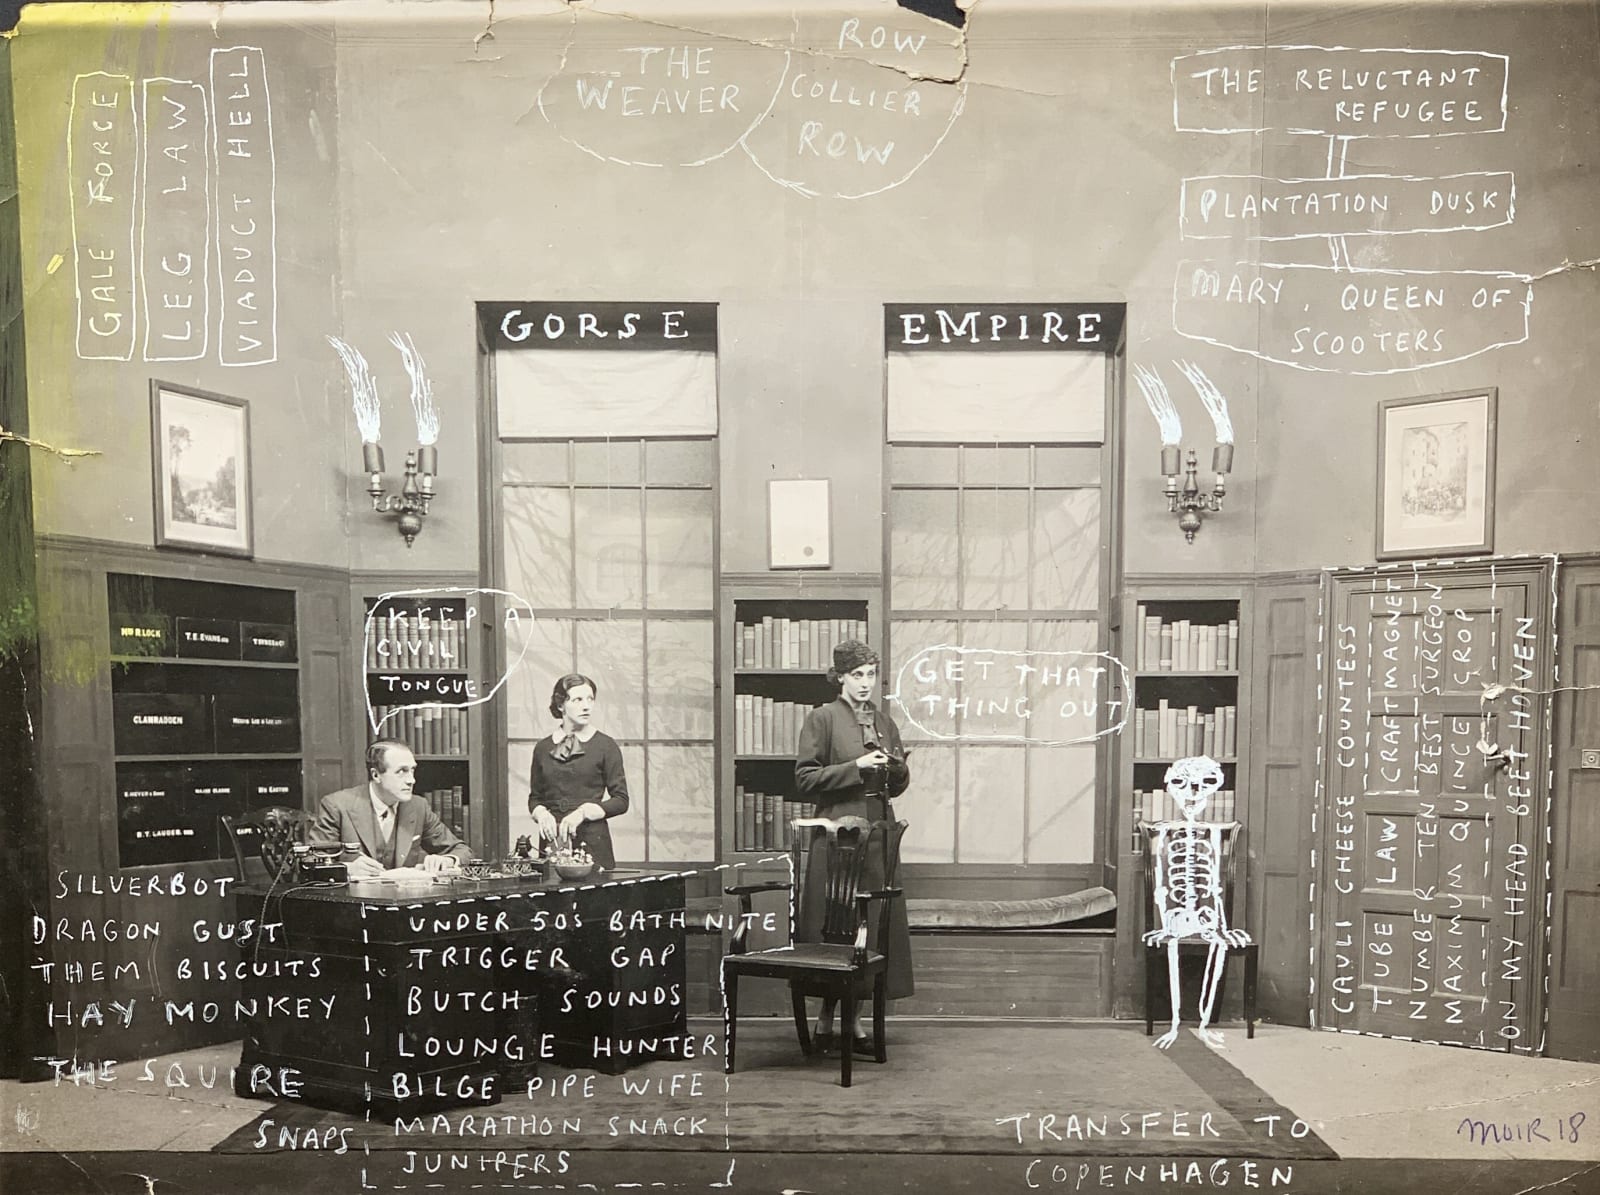 GALE FORCE
LEG LAW
VIADUCT HELL
THE
WEAVER
ROW
COLLIER
ROW
THE RELUCTANT
REFUGEE
PLANTATION DUSK
MARY, QUEEN OF
SCOOTERS
GORSE
EMPIRE
KEEP A
CIVIL
TONGUE
GET THAT
THING OUT
CLANRADDEN
R. T. LAUDER
CAVLI CHEESE COUNTESS
TUBE LAW CRAFTMAGNET
NUMBER TEN BEST SURGEON
MAXIMUM QUINCE CROP
ON MY HEAD BEET HOIVEN
SILVERBOT
DRAGON GUST
THEM BISCUITS
HAY MONKEY
THE SQUIRE
SNAPS
UNDER 50'S BATH NITE
TRIGGER GAP
BUTCH SOUNDS
LOUNGE HUNTER
BILGE PIPE WIFE
MARATHON SNACK
JUNIPERS
TRANSFER TO
COPENHAGEN
MOIR 18